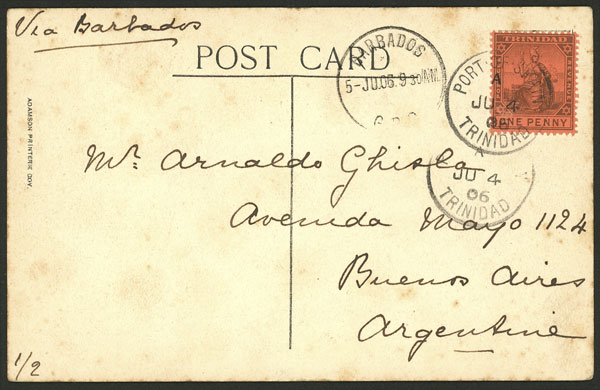 Via Barbados
POST CARD
BARBADOS
5-JU.06.9 30AM
G.P.O.
PORT
A
JU 4
06
TRINIDAD
ONE PENNY
A
JU 4
06
TRINIDAD
ADAMSON PRINTERIE
Mr. Arnaldo Ghisla
Avenida Mayo 1124
Buenos Aires
Argentine
1/2